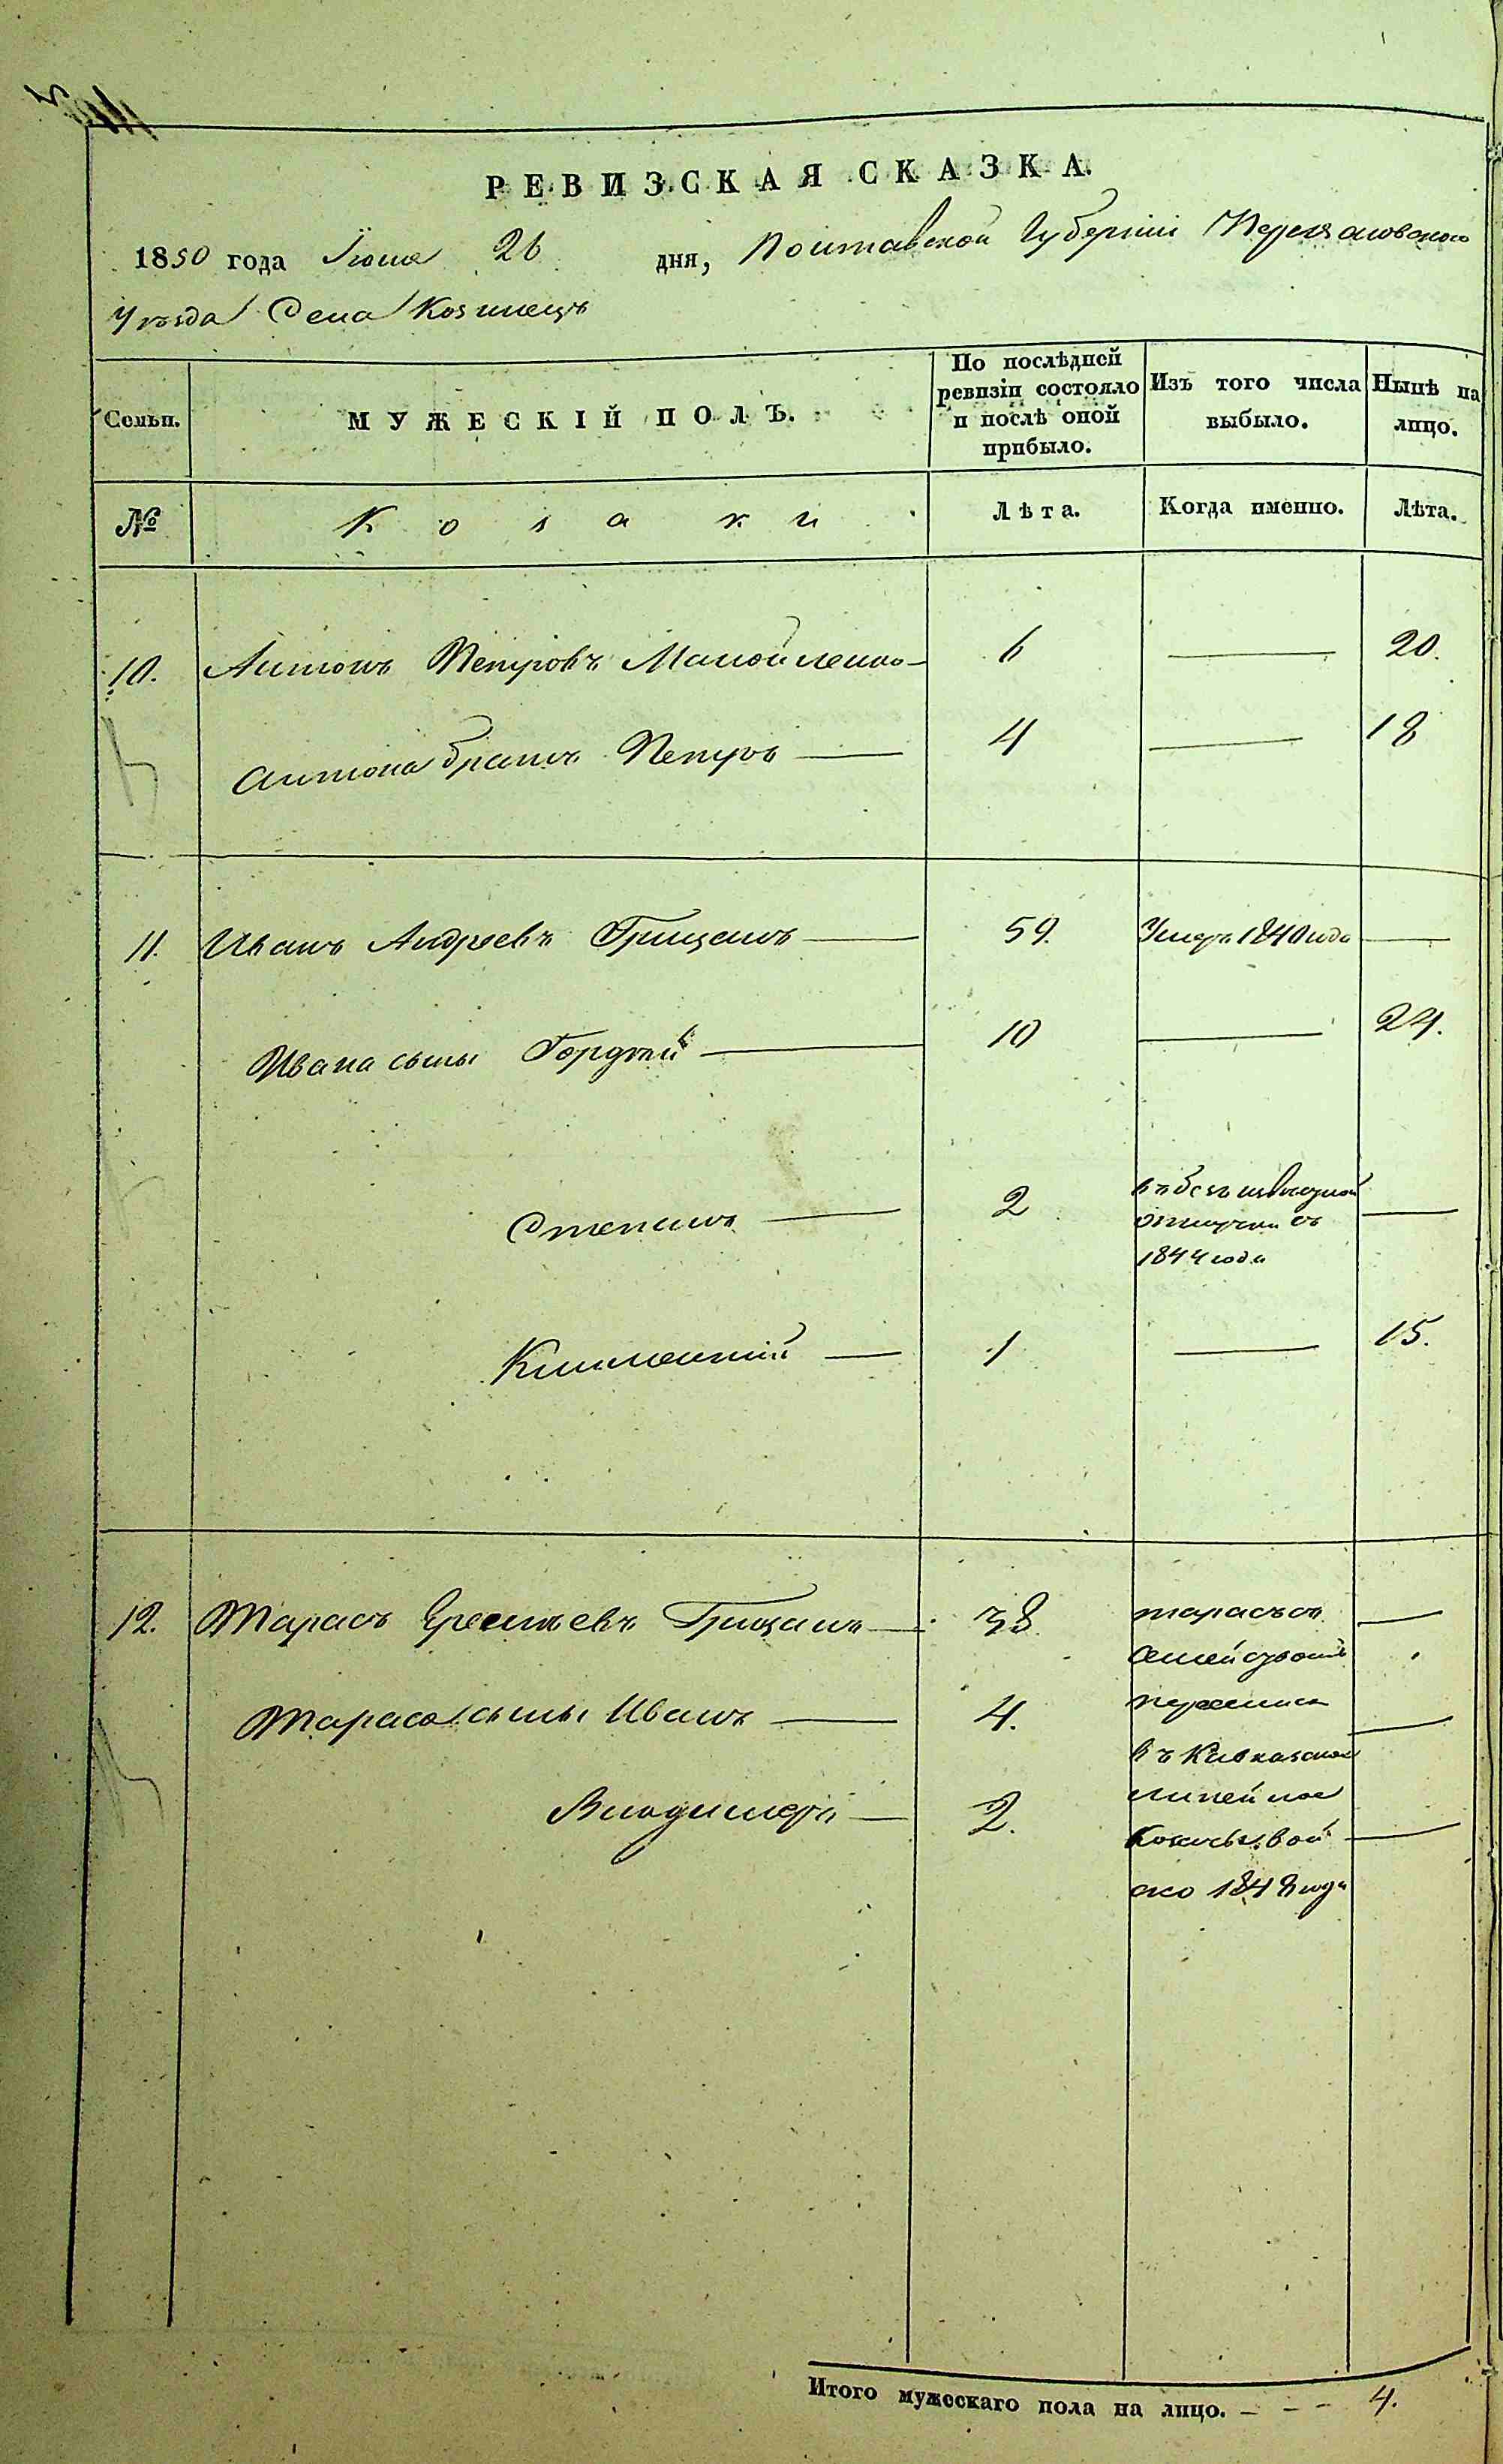 РЕВИЗСКАЯ СКАЗКА.
1850 года Іюня 26 дня, Полтавской Губерніи Переяславскаго
Уѣзда Села Козинецъ
Семьи. МУЖЕСКІЙ ПОЛЪ. По послѣдней ревизіи состояло и послѣ оной прибыло. Изъ того числа выбыло. Нынѣ на лицо.
№ Козаки Лѣта. Когда именно. Лѣта.
10. Антонъ Петровъ Манойленко 6 20.
Антона братъ Петръ 4 18
11. Иванъ Андреевъ Грицанъ 59. Умеръ 1840 года
Ивана сыны Гордѣй 10 24.
Степанъ 2 въ безъизвѣстной
отлучки съ
1844 года
Климентій 1 15.
12. Тарасъ Грицанъ 38 Тарасъ съ
семействомъ
Тараса сыны Иванъ 4.
въ Кавказское
Владимеръ 2. линейное
Козачье вой
ско 1848 года
Итого мужескаго пола на лицо. - - - 4.